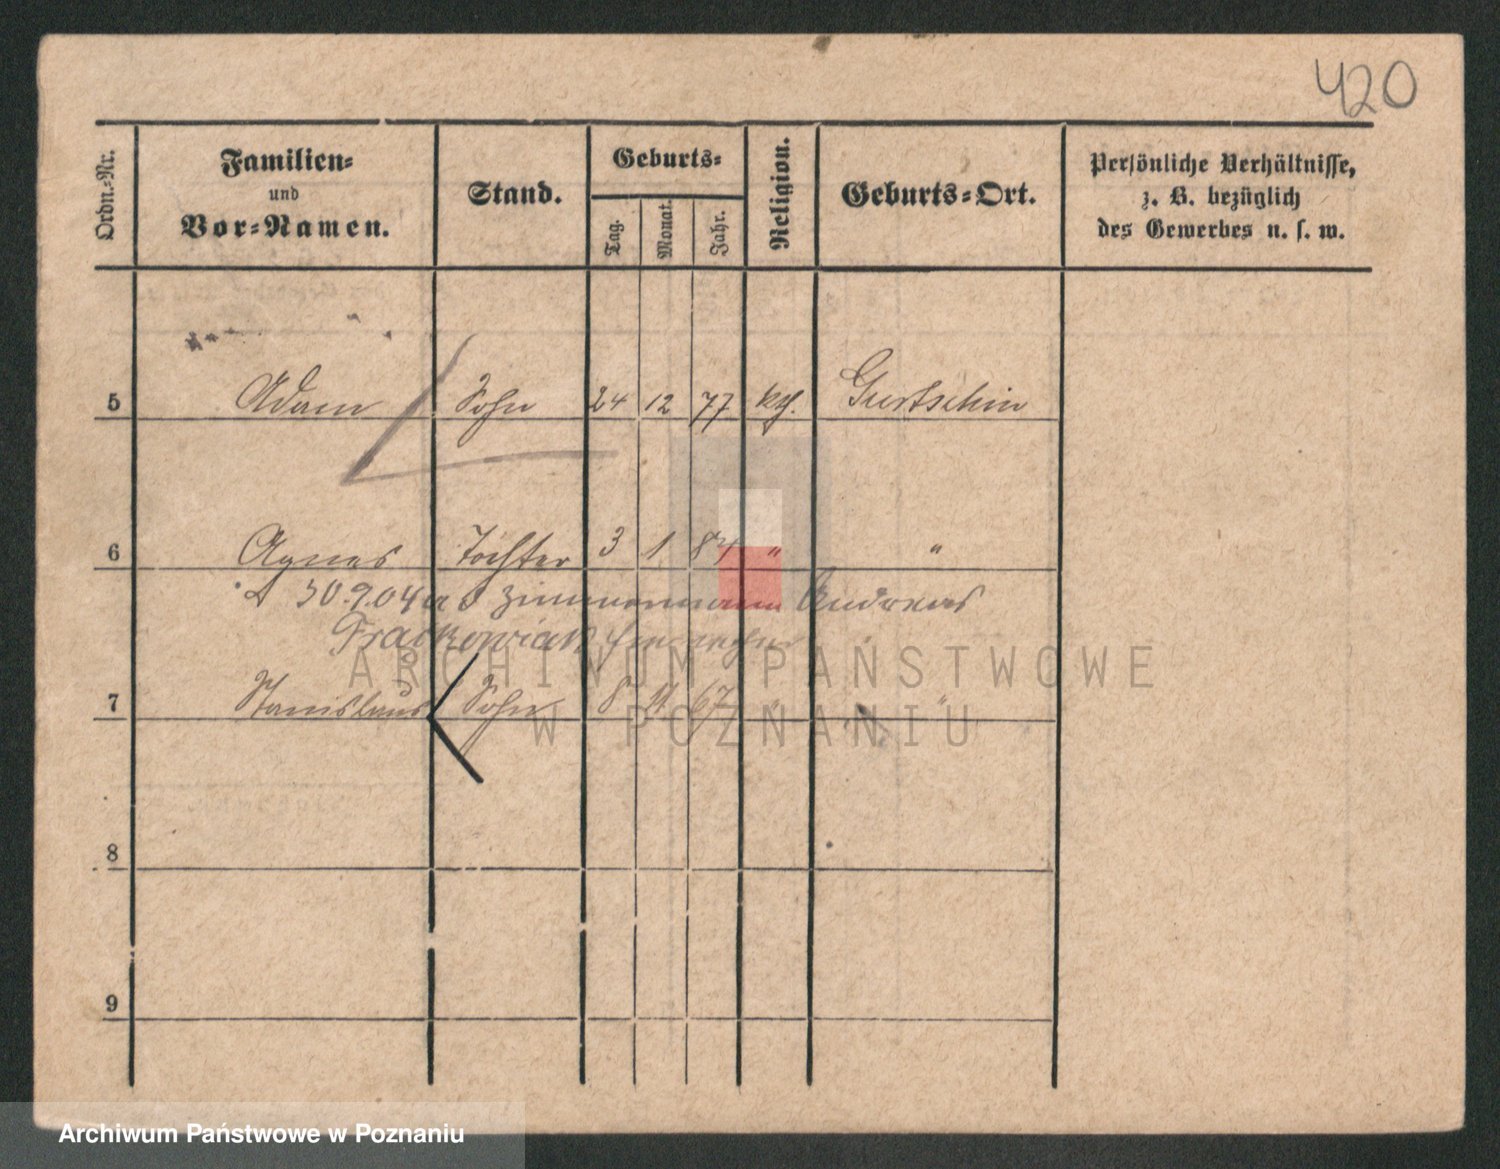 420
Ordn.-Nr.
Familien-
und
Vor-Namen.
Stand.
Geburts-
Tag.
Monat.
Jahr.
Religion.
Geburts-Ort.
Persönliche Verhältnisse,
z. B. bezüglich
des Gewerbes u. s. w.
5 Adam Sohn 24 12 77 kth. Gurtschin
6 Agnes Tochter 3 1 84 " "
30.9.04 Zimmermann Andreas
Frackowiak
7 Stanislaus Sohn 8 11 67 " "
8
9
ARCHIWUM PAŃSTWOWE
W POZNANIU
Archiwum Państwowe w Poznaniu